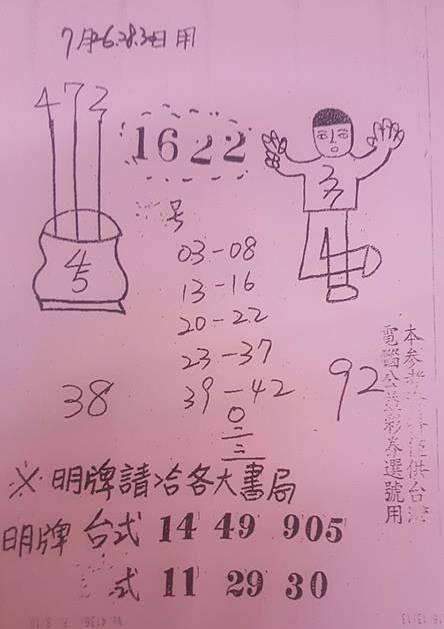 7月26.28.30日用
4 7 2
1622
45
号
03-08
13-16
20-22
23-37
39-42
38
92
〇
二
三
本參考
供台灣
電腦公益彩券選號用
※明牌請洽各大書局
明牌 台式 14 49 905
式 11 29 30